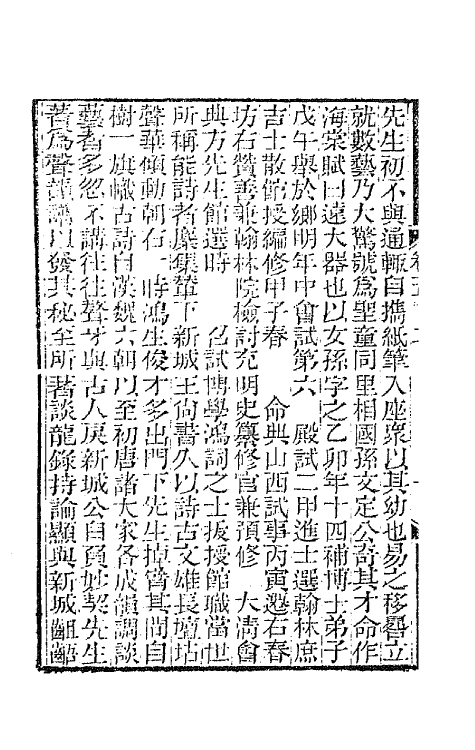 先生初不與通輒自携紙筆入座衆以其幼也易之移晷立
就數藝乃大驚號爲聖童同里相國孫文定公奇其才命作
海棠賦曰遠大器也以女孫字之乙卯年十四補博士弟子
戊午舉於鄉明年中會試第六　殿試二甲進士選翰林庶
吉士散館授編修甲子春　命典山西試事丙寅遷右春
坊右贊善兼翰林院檢討充明史纂修官兼預修　大淸會
典方先生館選時　召試博學鴻詞之士拔授館職當世
所稱能詩者麇集輦下新城王尙書久以詩古文雄長壇坫
聲華傾動朝右一時鴻生俊才多出門下先生掉臂其間自
樹一旗幟古詩自漢魏六朝以至初唐諸大家各成韻調談
藝者多忽不講往往聲牙與古人戾新城公自負妙契先生
著爲聲譜講以發其秘至所著談龍錄持論顯與新城齟齬